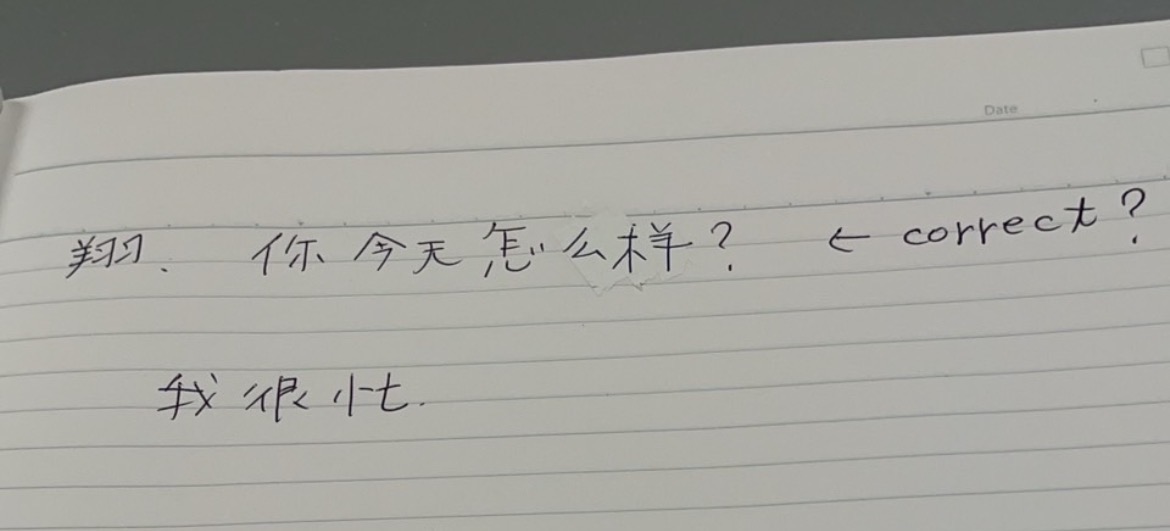 Date
翔. 你今天怎么样? ← correct?
我很忙.